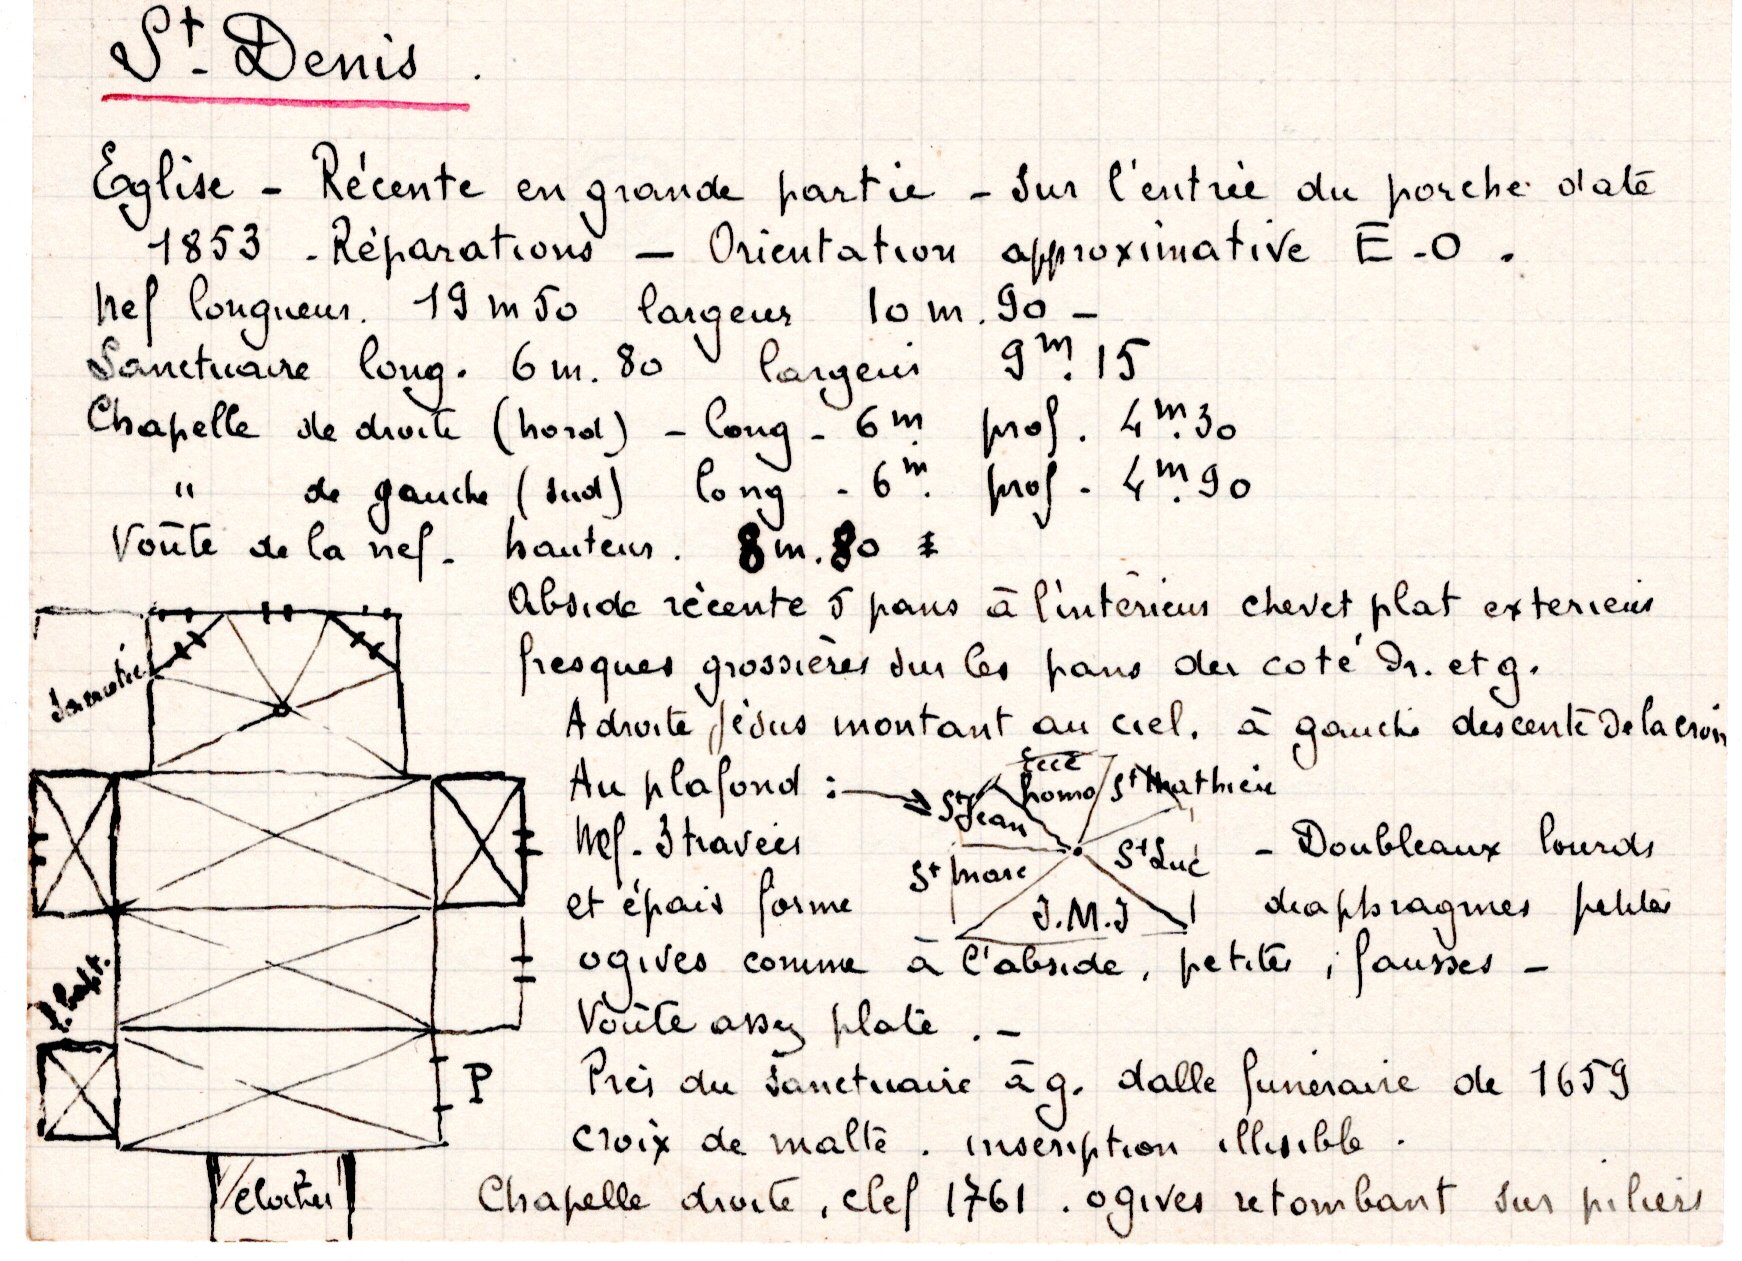 St- Denis.
Eglise - Récente en grande partie - Sur l'entrée du porche date
1853 - Réparations - Orientation approximative E-O.
Nef longueur. 19 m 50 largeur 10 m. 90 -
Sanctuaire long. 6 m. 80 largeur 9m.15
Chapelle de droite (nord) - long - 6m. prof. 4m.30
" de gauche (sud) long - 6m. prof - 4m.90
Voûte de la nef - hauteur. 8 m. 80
Abside récente 5 pans à l'intérieur chevet plat exterieur
fresques grossières sur les pans du coté Dr. et g.
A droite Jésus montant au ciel. à gauche descente de la croix
Au plafond :
Ecce
homo
St Mathieu
St Jean
St Luc
St Marc
J.M.J
Nef - 3 travées - Doubleaux lourds
et épais forme diaphragmes petites
ogives comme à l'abside, petites, fausses -
Voûte assez plate. -
Près du Sanctuaire à g. dalle funéraire de 1659
croix de malte. inscription illisible.
Chapelle droite, clef 1761. ogives retombant sur piliers
Sacristie
f. bapt.
P
Clocher